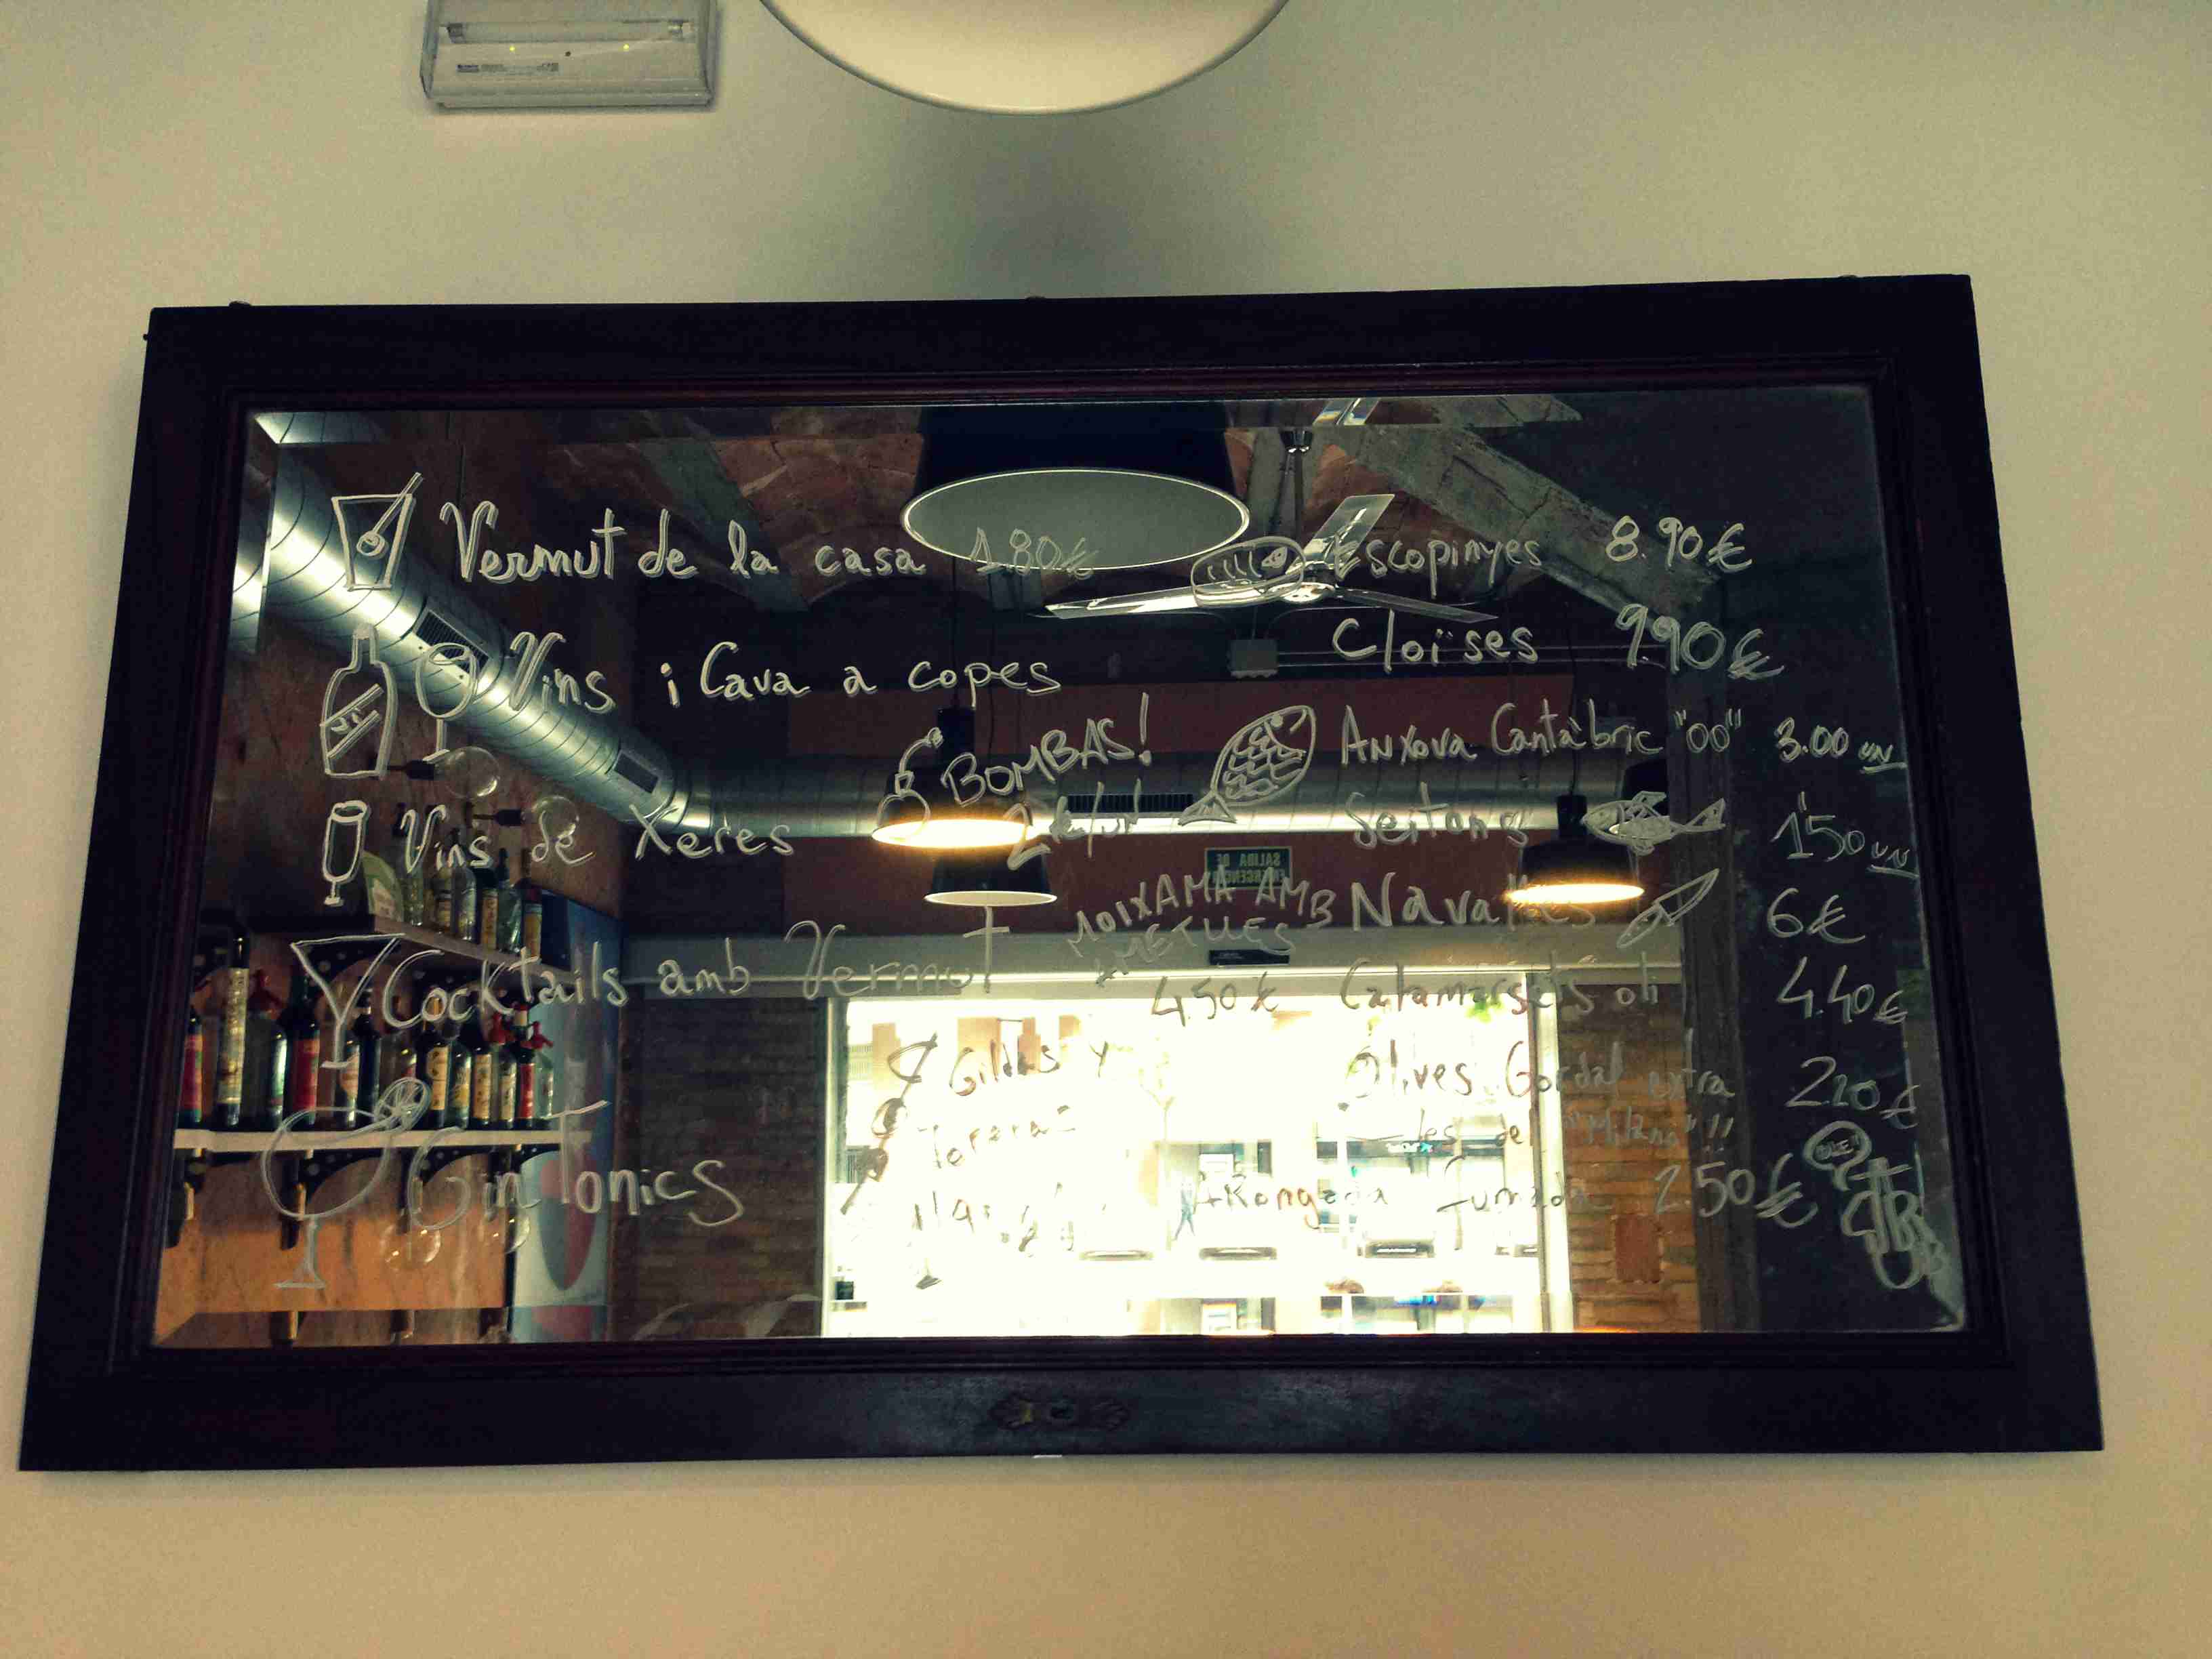 Vermut de la casa 1.80€
Vins i Cava a copes
BOMBAS!
Vins de Xeres
Cocktails amb Vermut
Gin Tonics
MOIXAMA AMB
AMETLLES
4.50€
Gildas y
Escopinyes 8.90€
Cloïses 9.90€
ANXova Cantàbric "00" 3.00 un
Seitons 1'50 un
Navalles 6€
Calamarsets oli 4.40€
Olives Gordal extra 2.20€
les del "Milano"!!
Arengada fumada 2.50€
OLE!
SALIDA DE